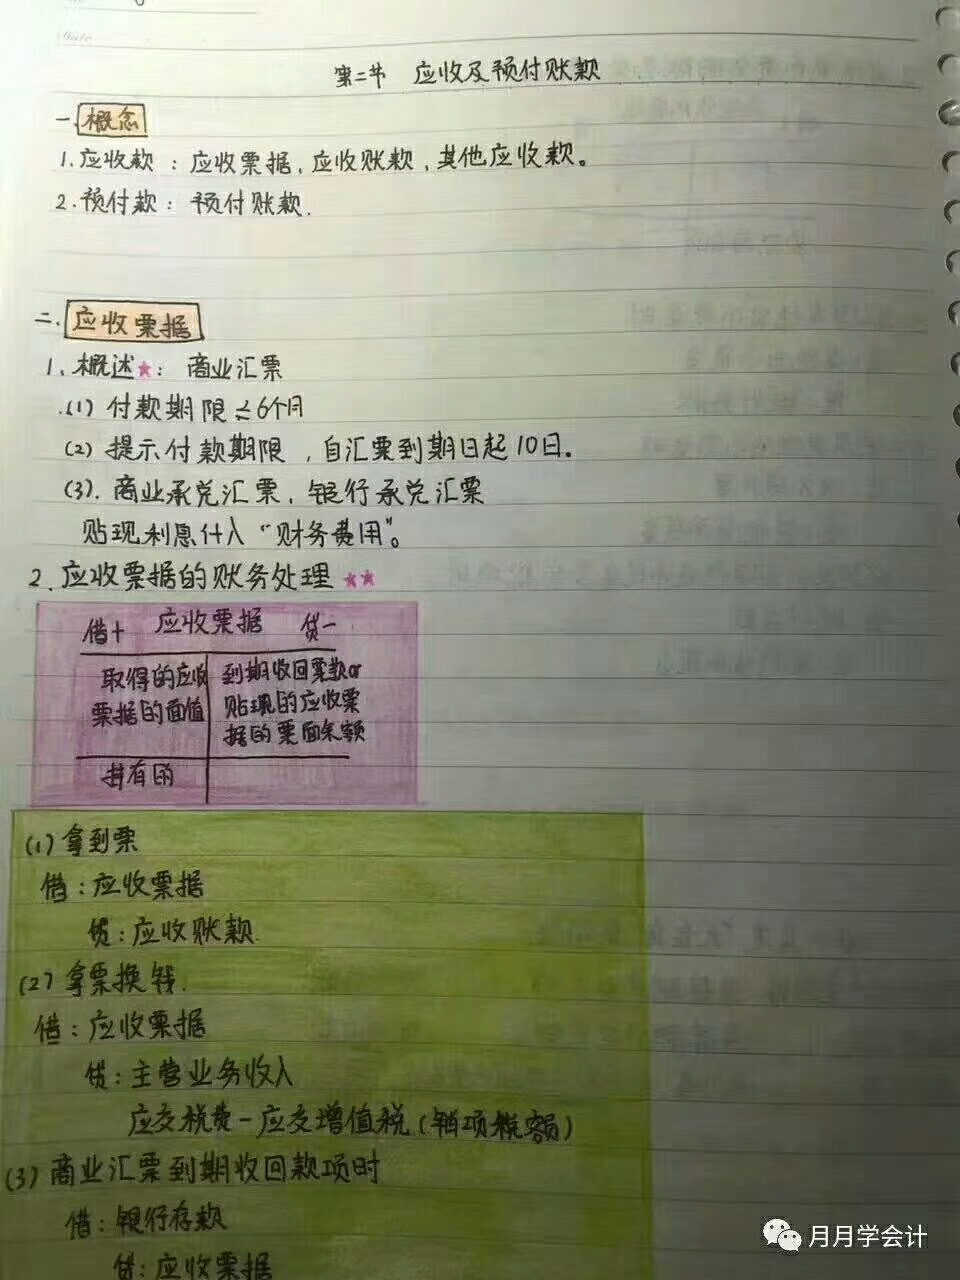 Date
第二节 应收及预付账款
一.概念
1.应收款：应收票据，应收账款，其他应收款。
2.预付款：预付账款.
二.应收票据
1.概述★：商业汇票
(1) 付款期限≤6个月
(2) 提示付款期限，自汇票到期日起10日。
(3). 商业承兑汇票，银行承兑汇票
贴现利息什入“财务费用”。
2.应收票据的账务处理★★
借+ 应收票据 贷-
取得的应收票据的面值
到期收回票款or贴现的应收票据的票面余额
持有的
(1) 拿到票
借：应收票据
贷：应收账款.
(2) 拿票换钱.
借：应收票据
贷：主营业务收入
应交税费-应交增值税(销项税额)
(3) 商业汇票到期收回款项时
借：银行存款
贷：应收票据
月月学会计